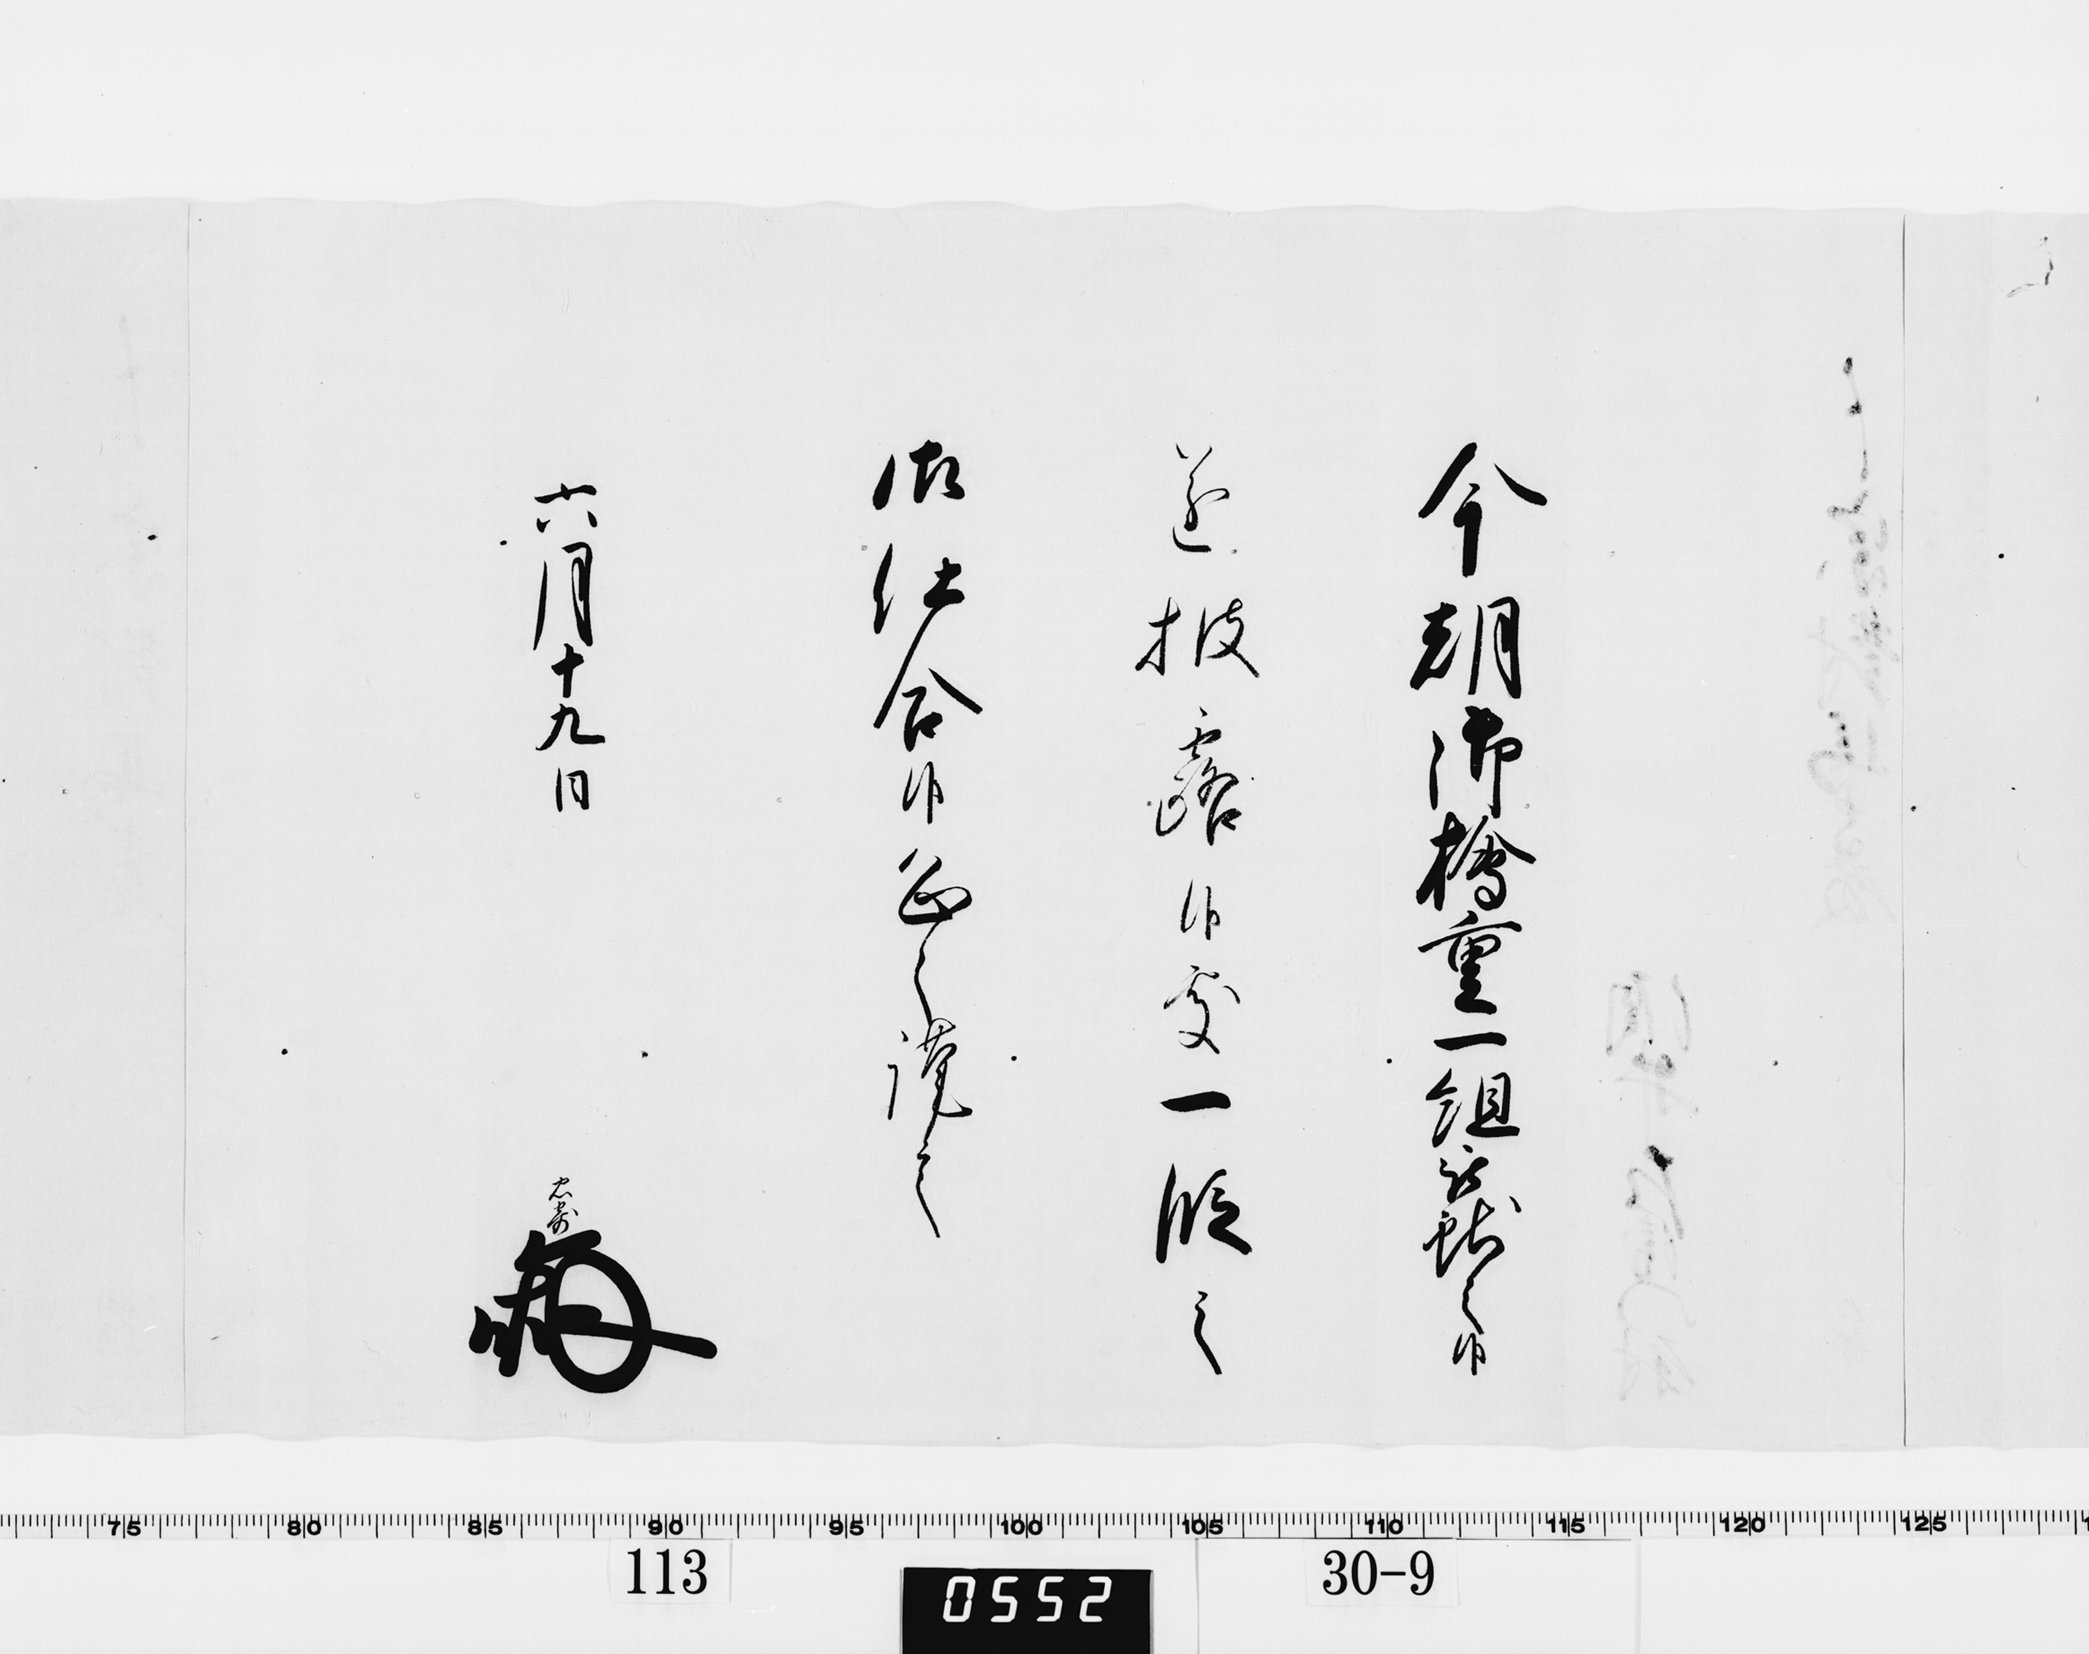 今朝御檜重一組被献之候
遂披露候處一段之
御仕合候恐々謹言
六月十九日
忠寄
75 80 85 90 95 100 105 110 115 120 125
113
0552
30-9